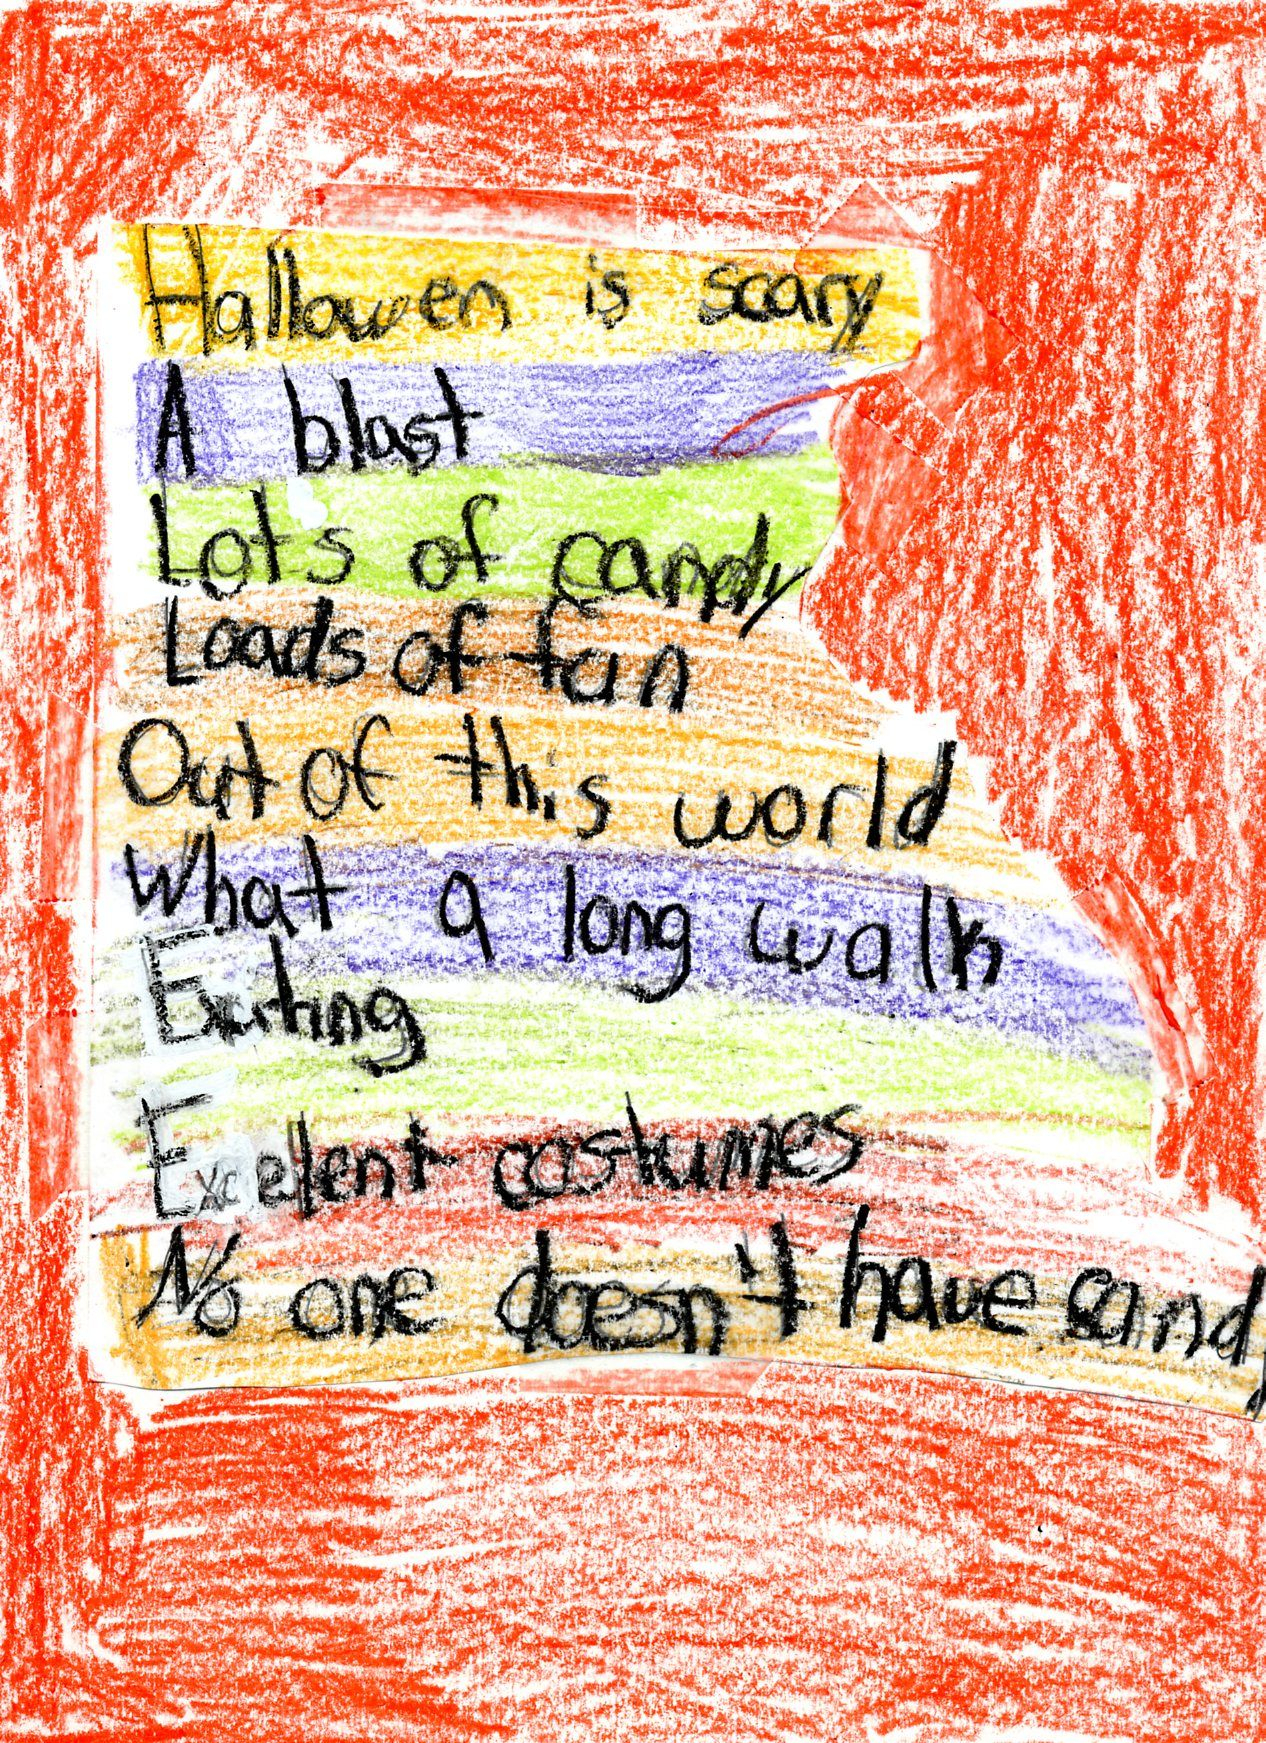 Hallowen is scary
A blast
Lots of candy
Loads of fun
Out of this world
What a long walk
Exiting
Excelent costumes
No one doesn't have candy